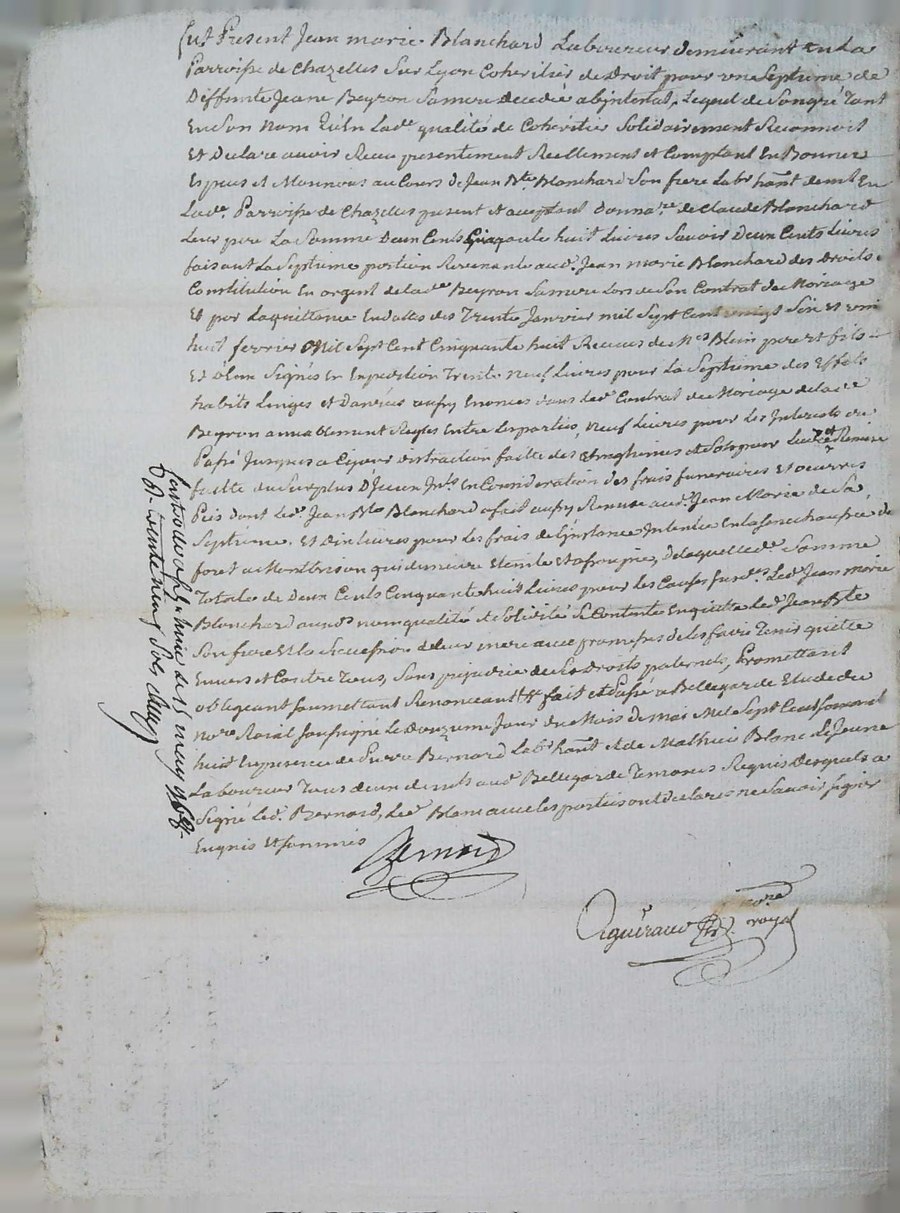 fut Present Jean marie Blanchard Laboureur demeurant en La
Parroisse de Chazelles Sur Lyon Coheritier de Droit pour une Septieme de
Deffunte Jeane Beyron Sa mere decedée abintestat, Lequel de Son gré tant
En Son Nom qu'En Lad.e qualité de Cohéritier Solidairement Reconnoit
Et Declare avoir Receu presentement Reellement et Comptant En Bonnes
Espeus et Monnoies au Cours de Jean B.te Blanchard Son frere Lab.r hãnt demt En
Lad.e Parroisse de Chazelles present et acceptant Donna.re de Claude Blanchard
Leur pere La Somme Deux Cents Cinquante huit Livres Savoir Deux Cents Livres
faisant La Septieme portion Revenante aud. Jean marie Blanchard des Droits
Constitution En argent de lad.e Beyron Sa mere Lors de Son Contrat de Mariage
Et par La quittance En dattes des Trente Janvier mil Sept Cent vingt Six et vin
huit fevrier Mil Sept Cent Cinquante huit Receues de M.es Blein pere et fils
Et Signés En Expedition Trente Neuf Livres pour La Septieme des Effets
habits Linges et Danrées aussy Enoncés dans Led. Contrat de Mariage de lad.e
Beyron amiablement Reglés Entre Les parties, Neuf Livres pour Les Interests du
Passé Jusques a Ce jour distraction faitte des Vingtiemes et Sols pour Livre et Remise
faitte du Surplus D'iceux Int.s En Consideration des frais funeraires Et oeuvres
Pies dont Led. Jean B.te Blanchard a fait aussy Remise aud. Jean Marie de Sa
Septieme. Et Dix Livres pour Les frais de L'instance Intentée En La Senechaussée de
forest a Montbrison qui demeure Eteinte Et assoupie, De laquelle d.e Somme
Totale de Deux Cents Cinquante huit Livres pour Les Causes fur.des Led. Jean Marie
Blanchard auxd. nom qualité et Solidité Se Contente Enquitte Led. Jean B.te
Son frere Et La Succession de Leur mere avec promesses de Les faire Tenir quitte
Envers et Contre Tous, Sans prejudice de Ses Droits paternels, Promettant
obligeant Soumettant Renonceant &c fait et Passé a Bellegarde Etude du
no.re Roial Soussigné Le Douzieme Jour du Mois de Mai Mil Sept Cent Soixante
huit En presence de Pierre Bernard Lab.r hãnt et de Mathieu Blanc Le Jeune
Laboureur Tous deux demts aud. Bellegarde Temoins Requis Desquels a
Signé Led. Bernard, Led. Blanc avec les parties ont declaré ne Savoir Signer
Enquis Et Sommés
Bernard
no.re
royal
de 15 may 1768
R. trente neuf sols